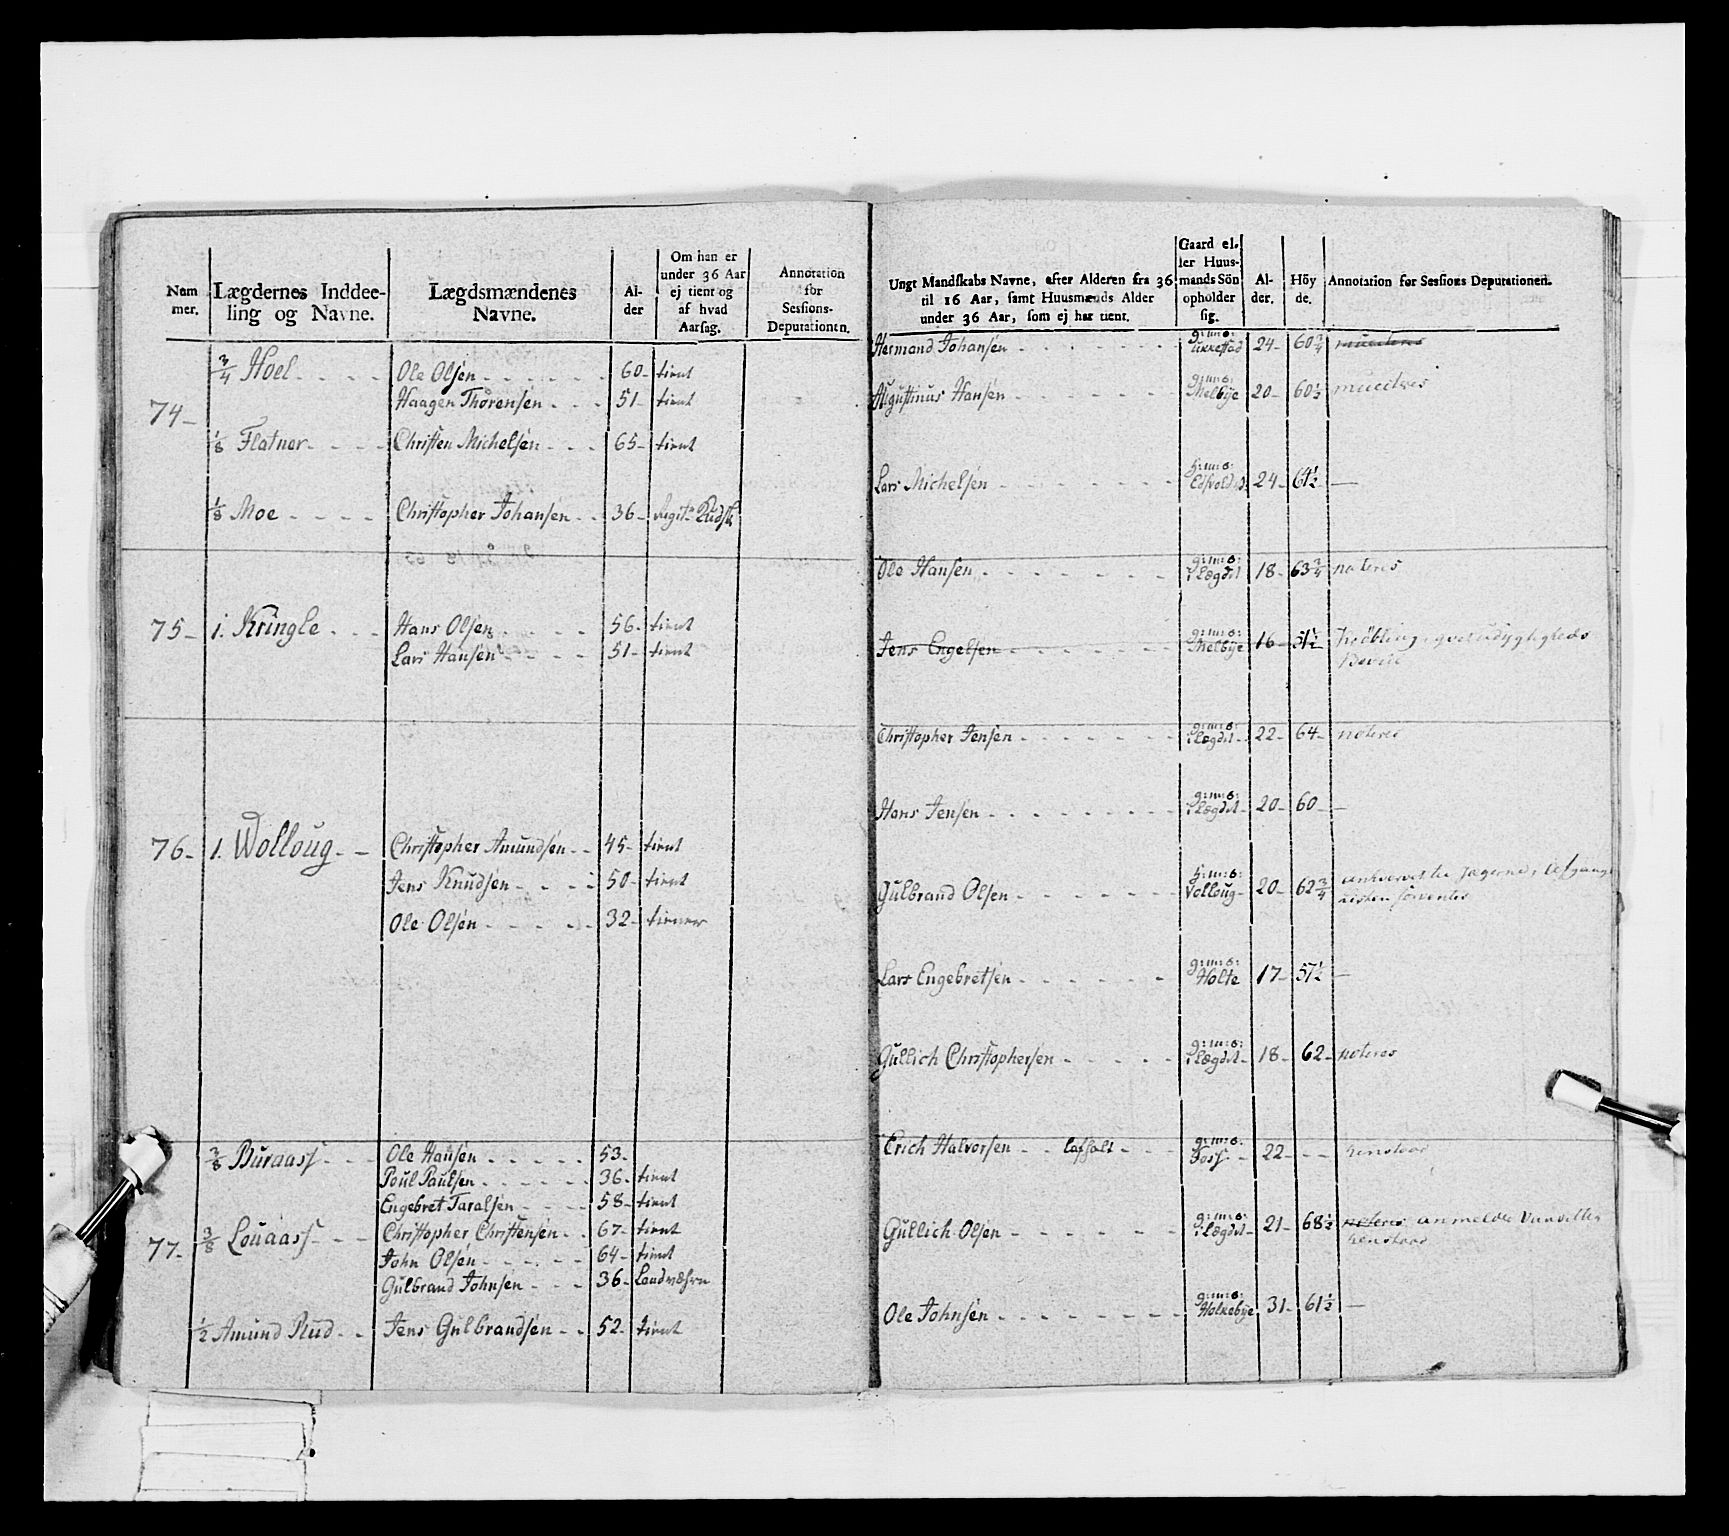 Num
mer.
Lægdernes Inddee-
ling og Navne.
Lægdsmændenes
Navne.
Al-
der
Om han er
under 36 Aar
ej tient og
af hvad
Aarsag.
Annotation
for
Sessions-
Deputationen.
74-
3/4 Hoel
Ole Olsen 60- tient
Haagen Thorensen 51- tient
1/8 Flatner Christen Michelsen 65- tient
1/8 Moe Christopher Johansen 36-
75- 1. Kringle Hans Olsen 56- tient
Lars Hansen 51- tient
76- 1. Wolloug Christopher Amundsen 45- tient
Jens Knudsen 50- tient
Ole Olsen 32- tiener
77-
3/8 Buraass Ole Hansen 53-
Poul Paulsen 36- tient
Engebret Taralsen 58- tient
3/8 Louaass Christopher Christensen 67- tient
John Olsen 64- tient
Gulbrand Johnsen 36- Landværn
1/2 Amund Rud Jens Gulbrandsen 52- tient
Ungt Mandskabs Navne, efter Alderen fra 36
til 16 Aar, samt Huusmænds Alder
under 36 Aar, som ej har tient.
Gaard el-
ler Huus-
mands Sön
opholder
sig.
Al-
der.
Höy
de.
Annotation for Sessions Deputationen.
Hermand Johansen g: m: s: 24- 60 3/4
Augustinus Hansen g: m: s: Melbye 20- 60 1/2
Lars Michelsen h: m: s: Edsvold 24- 61 1/2 -
Ole Hansen g: m: s: i Lægdet 18- 63 3/4 noteres
Jens Engelsen g: m: s: Melbye 16- 51 1/2
Christopher Jensen g: m: s: i Lægdet 22- 64- noteres
Hans Jensen g: m: s: i Lægdet 20- 60- -
Gulbrand Olsen h: m: s: Volloug 20- 62 3/4
Lars Engebretsen g: m: s: Holte 17- 57 1/2 -
Gullich Christophersen g: m: s: i Lægdet 18- 62- noteres
Erich Halvorsen g: m: s: 22- - -
Gullich Olsen g: m: s: i Lægdet 21- 68 1/2 noteres anmeldt
Ole Johnsen g: m: s: Holkebye 31- 61 1/2 -